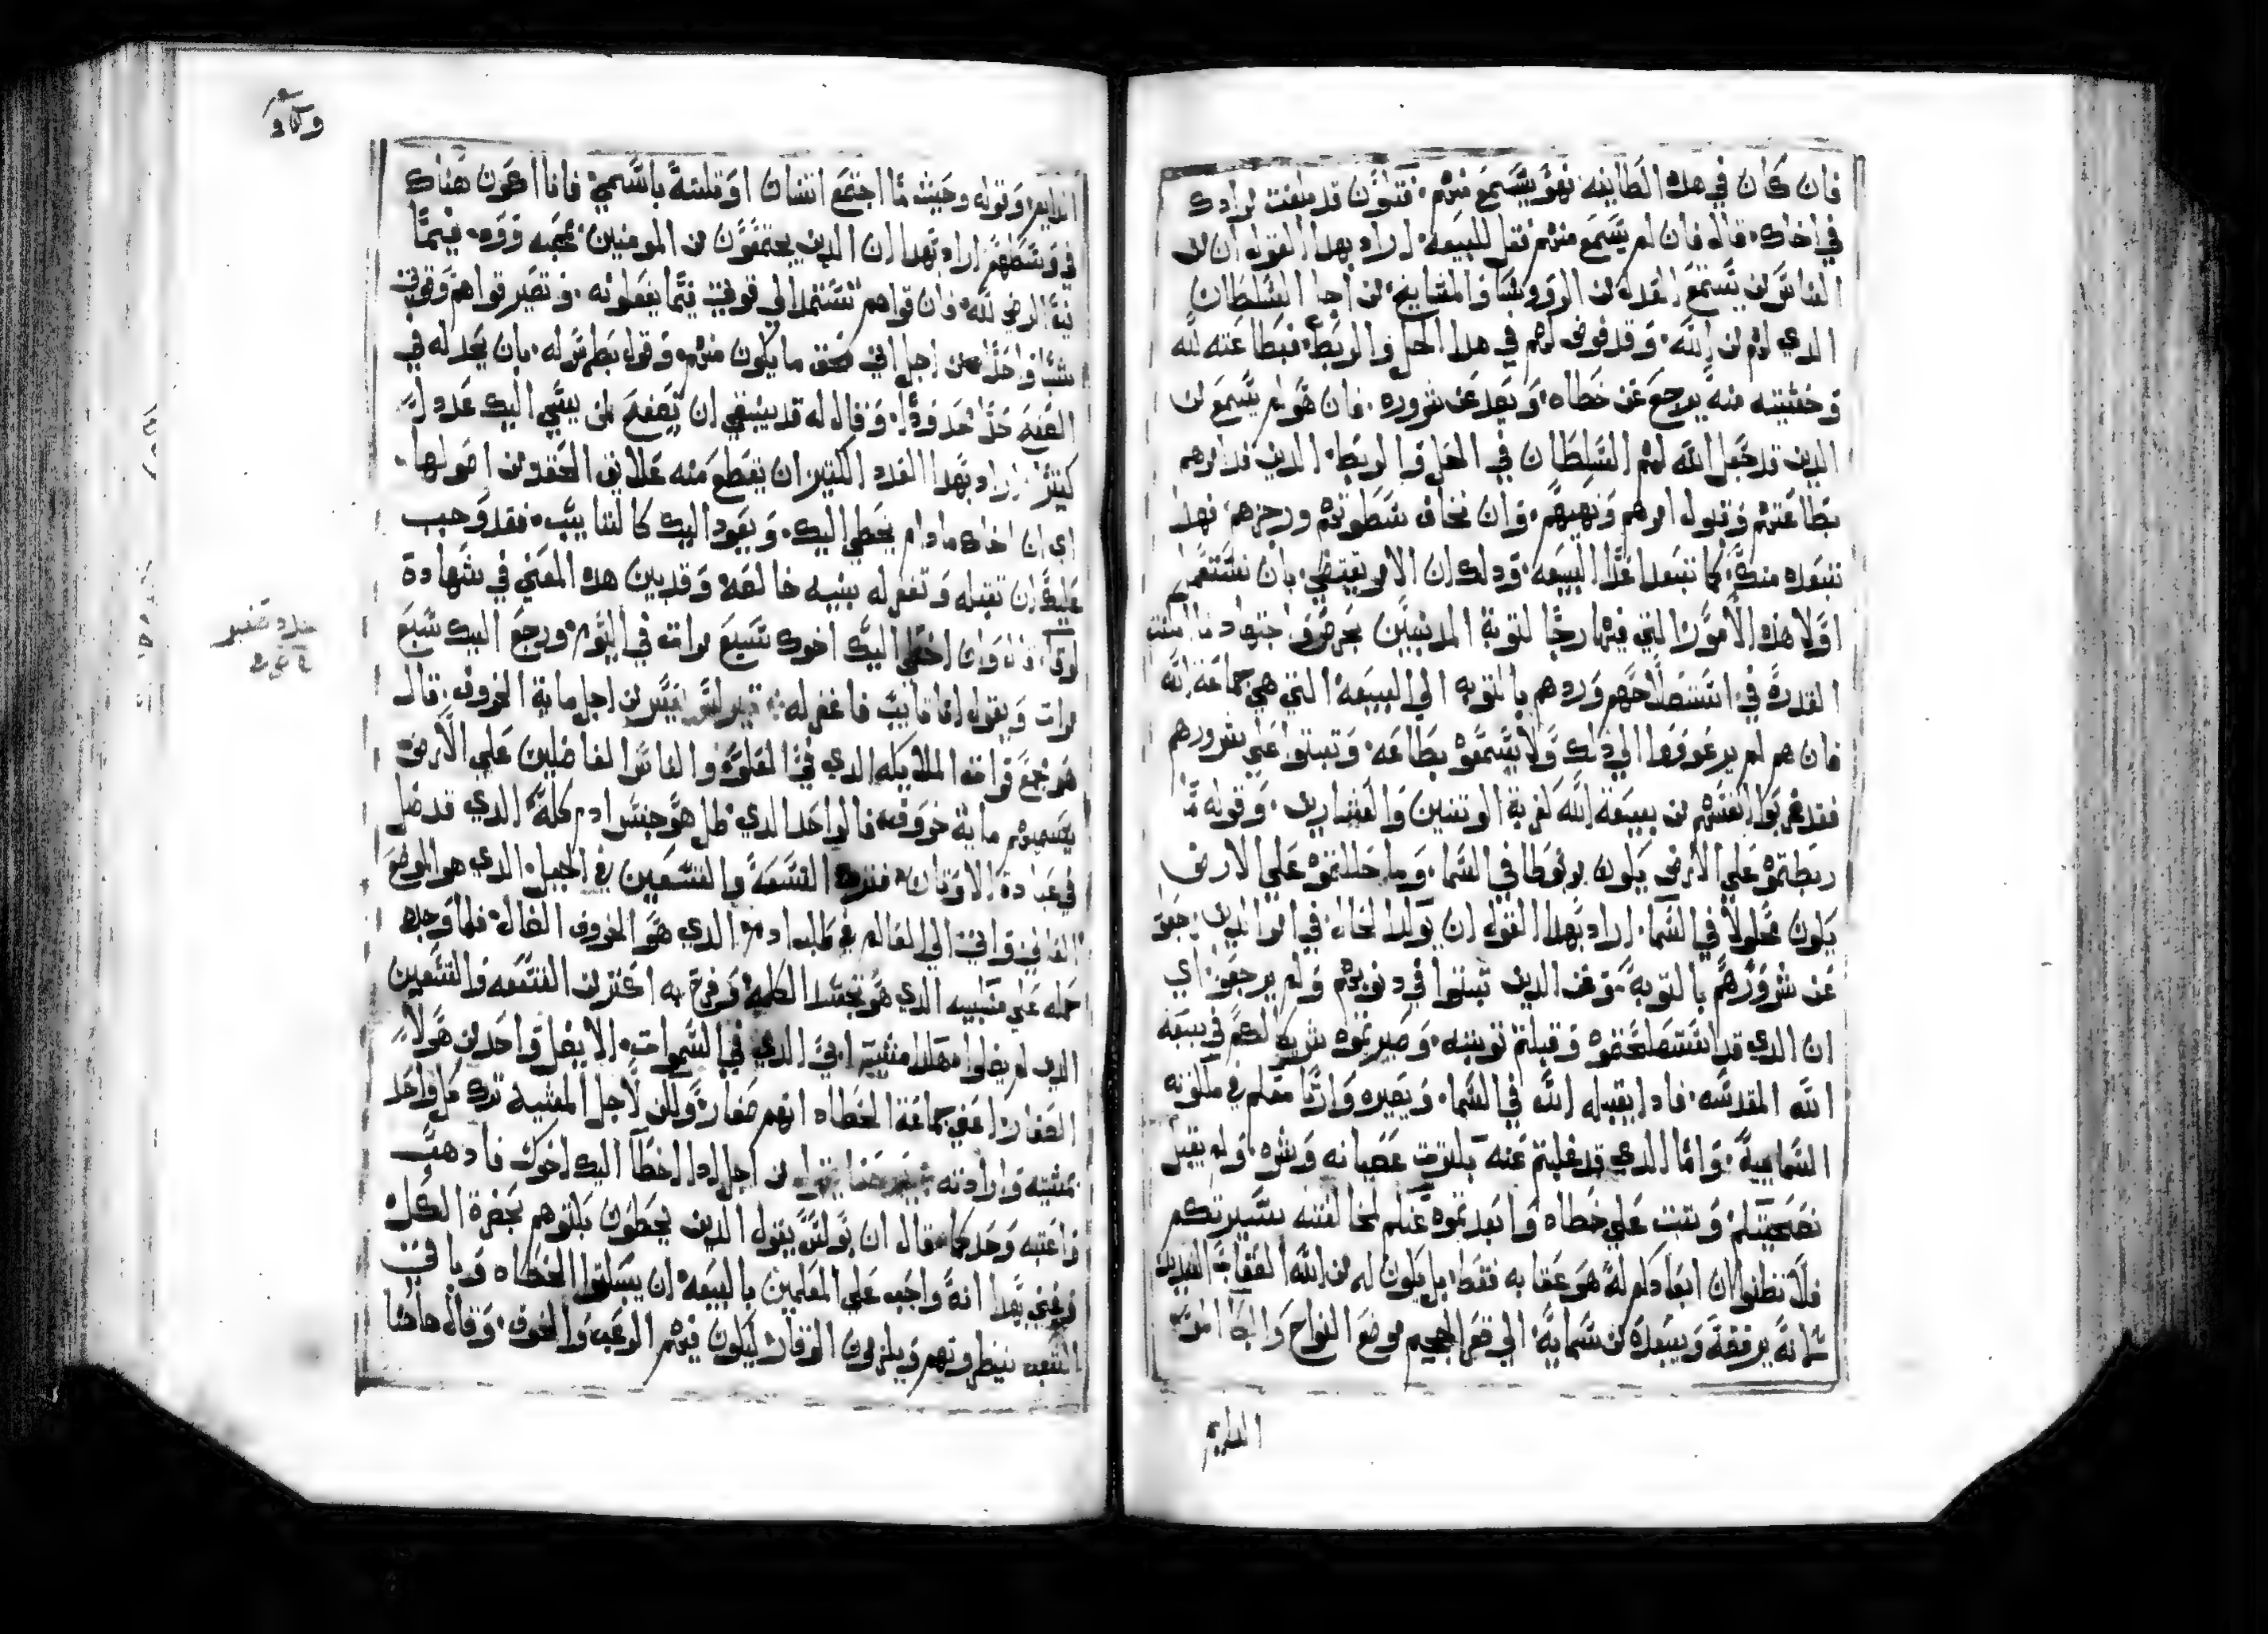 فان كان في هده الطايفه فهو يسمع منهم فتكون قد بلغت مرادك
في اخاك قال فان لم يسمع منهم فقل للبيعه اراد بهدا القول ان لن
الناس لن يستمع القدره من الروسا والمشايخ لن اجل السلطان
الدي لهم من الله وقد فوض لهم في هدا الحل والربط فبطاعته لله
وخشيته منه يرجع عن خطاه ويبعد عن شروره فان هو لم يسمع لن
الدين قد جعل الله لهم السلطان في الحل والربط الدين قد امرهم
بطاعتهم وقبول امرهم ونهيهم وان نخاف سطوتهم ورجزهم فهدا
نبعده منك كما نبعد اعدا البيعه ودلك ان الامر يقتضي بان نستعمل
اولا هذه الامور التي فيها رجا لتوبة المدنبين بحرص واجتهاد
القدرة في استصلاحهم وردهم بالتوبه الي البيعه التي هي جماعة الله
فان هم لم يرعووا الي ذلك ولا يسمعوا بطاعه وتبتوا علي شرورهم
فقد غربوا انفسهم من بيعة الله كغربة الوتنين والعشارين وقوله ما
ربطتموه علي الارض يكون مربوطا في السما وما حللتموه علي الارض
يكون محلولا في السما اراد بهدا القول ان في امر الدين رجعوا
عن شرورهم بالتوبة وعن الدين تبتوا في دنوبهم ولم يرجعوا اي
ان الدي قد استصلحتموه وقبلتم توبته وصيرتموه شريكا لكم في بيعة
الله المقدسه فادا يقبله الله في السما ويصيره وارتا معكم في ملكوته
السماييه واما الدي قد غلبتم عنه بكترت عصيانه وشره ولم يقبل
نصيحتكم وتبت علي خطاه وابعدتموه عنكم لمخالفته بسيرتكم
فلا تظنوا ان ابعادكم له هو عقابه فقط بل يكون له من الله العقاب الشديد
انه يرفضه ويبعده من سمايه الي قعر الجحيم موضع النواح والبكا المر
الدايم
الدايم وقوله وحيث ما اجتمع اتنان او تلتة باسمي فانا اكون هناك
في وسطهم اراد بهدا ان الدين يجتمعون من المومنين بمحبه وقوه
نية الرضي لله فان قواهم تستمد الي قوتي فيما يفعلونه وتصير قواهم وقوتي
شيا واحدا من اجل اني محقق ما يكون منهم وقول بطرس له بان يحد له في
العنه حدا محدودا وقال له قد ينبغي ان تصفح لمن يسي اليك عدد
كتير اراد بهدا العدد الكتير ان يقطع منه علايق الحقد من اصولها
اي ان اخاك مادام يخطي اليك ويعود اليك كالتايب فقد وجب
عليك ان تقبله وتغفر له بنيه خالصه وقد بين هده المعني في شهادة
لوقا قال وان اخطي اليك اخوك سبع مرات في اليوم ورجع اليك سبع
مرات ويقول انا تايب فاغفر له تفسير من اجل ماية الخروف قال
هو جمع قوات الملايكه الدي في العلو والناس الفاضلين علي الارض
يسميهم ماية خروف فالواحد الدي ظل هو جنس ادم كله الدي قد ضل
في عبادة الاوتان فترك التسعة والتسعين في الجبل الدي هو الموضع
العالي واتي الي العالم في طلب ادم الدي هو الخروف الضال فلما وجده
حمله علي منكبيه الدي هو تجسد الكلمة وفرح به اكتر من التسعه والتسعين
الدين لم يضلوا هكدا مشية ابي الدي في السموات الا يضل واحد من هولا
الصغار اعني جماعة الخطاه انهم صغار ولكن لاجل المشية ترك كل واحد
بمشيته وارادته من اجل ادا اخطا اليك اخوك فادهب
واعتبه وحدكما قال ان بولس يقول الدين يخطون بكتوهم بحضرة الكل
ويعني بهدا انه واجب علي المعلمين بالبيعه ان يسكتوا الخطاه وباقي
الشعب ينظرونهم ويلزمون الوقار ليكون فيهم الرعب والخوف وقال